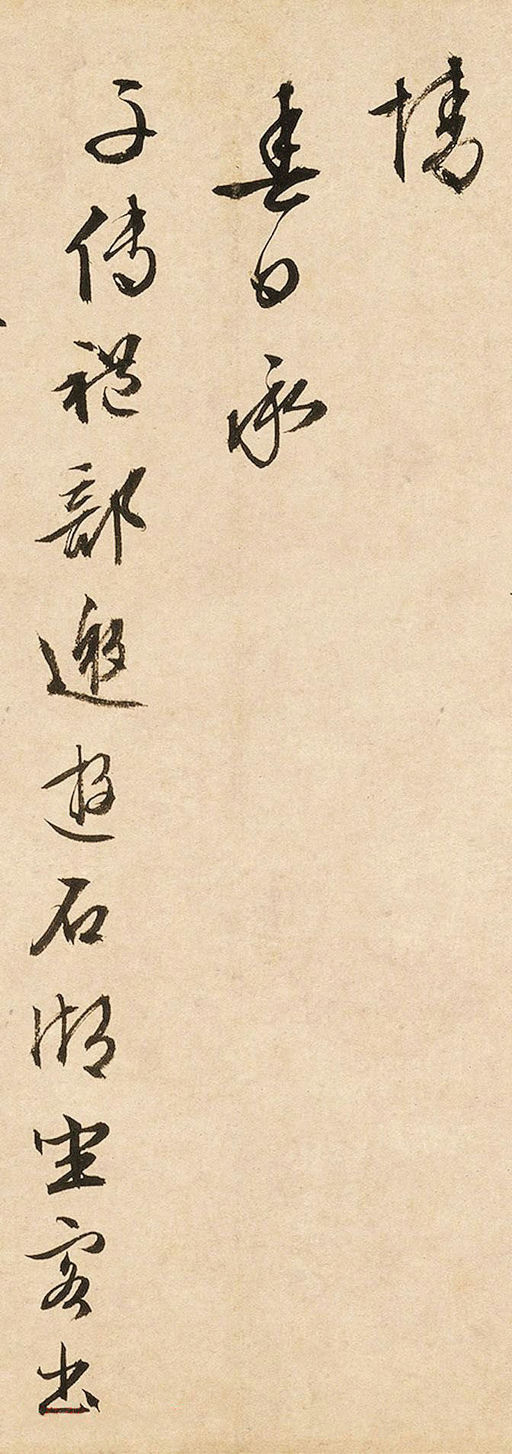 情
春日承
子傳禮部邀遊石湖坐客出